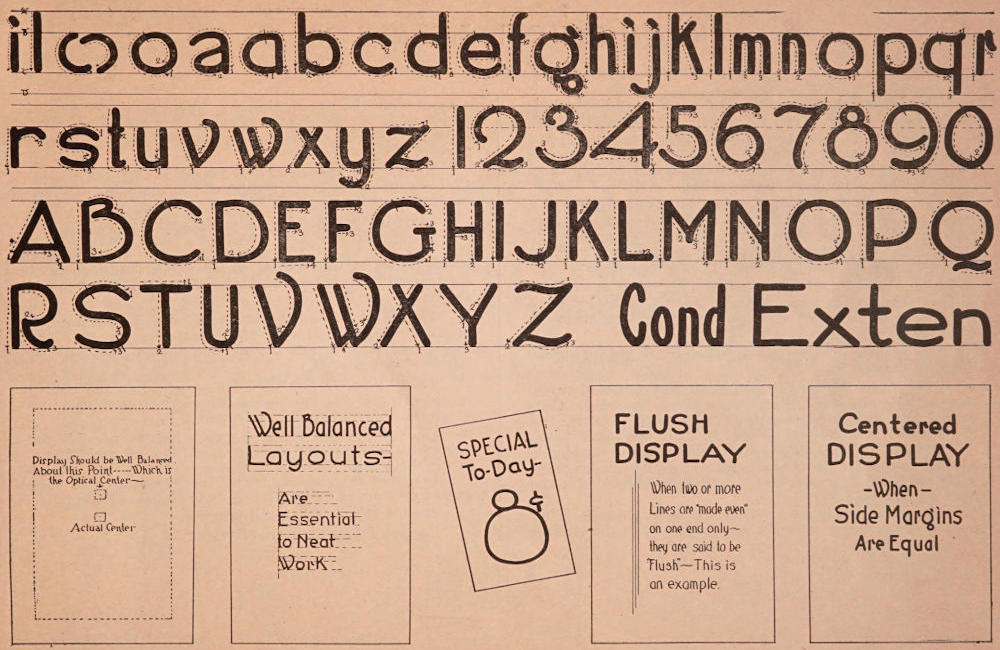 i l o o a a b c d e f g h i j k l m n o p q r
r s t u v w x y z 1 2 3 4 5 6 7 8 9 0
A B C D E F G H I J K L M N O P Q
R S T U V W X Y Z Cond Exten
Display Should be Well Balanced
About this Point-----Which is
the Optical Center~
Actual Center
Well Balanced
Layouts-
Are
Essential
to Neat
Work
SPECIAL
To-Day-
8¢
FLUSH
DISPLAY
When two or more
Lines are "made even"
on one end only~
they are said to be
"Flush"~This is
an example.
Centered
DISPLAY
-When-
Side Margins
Are Equal